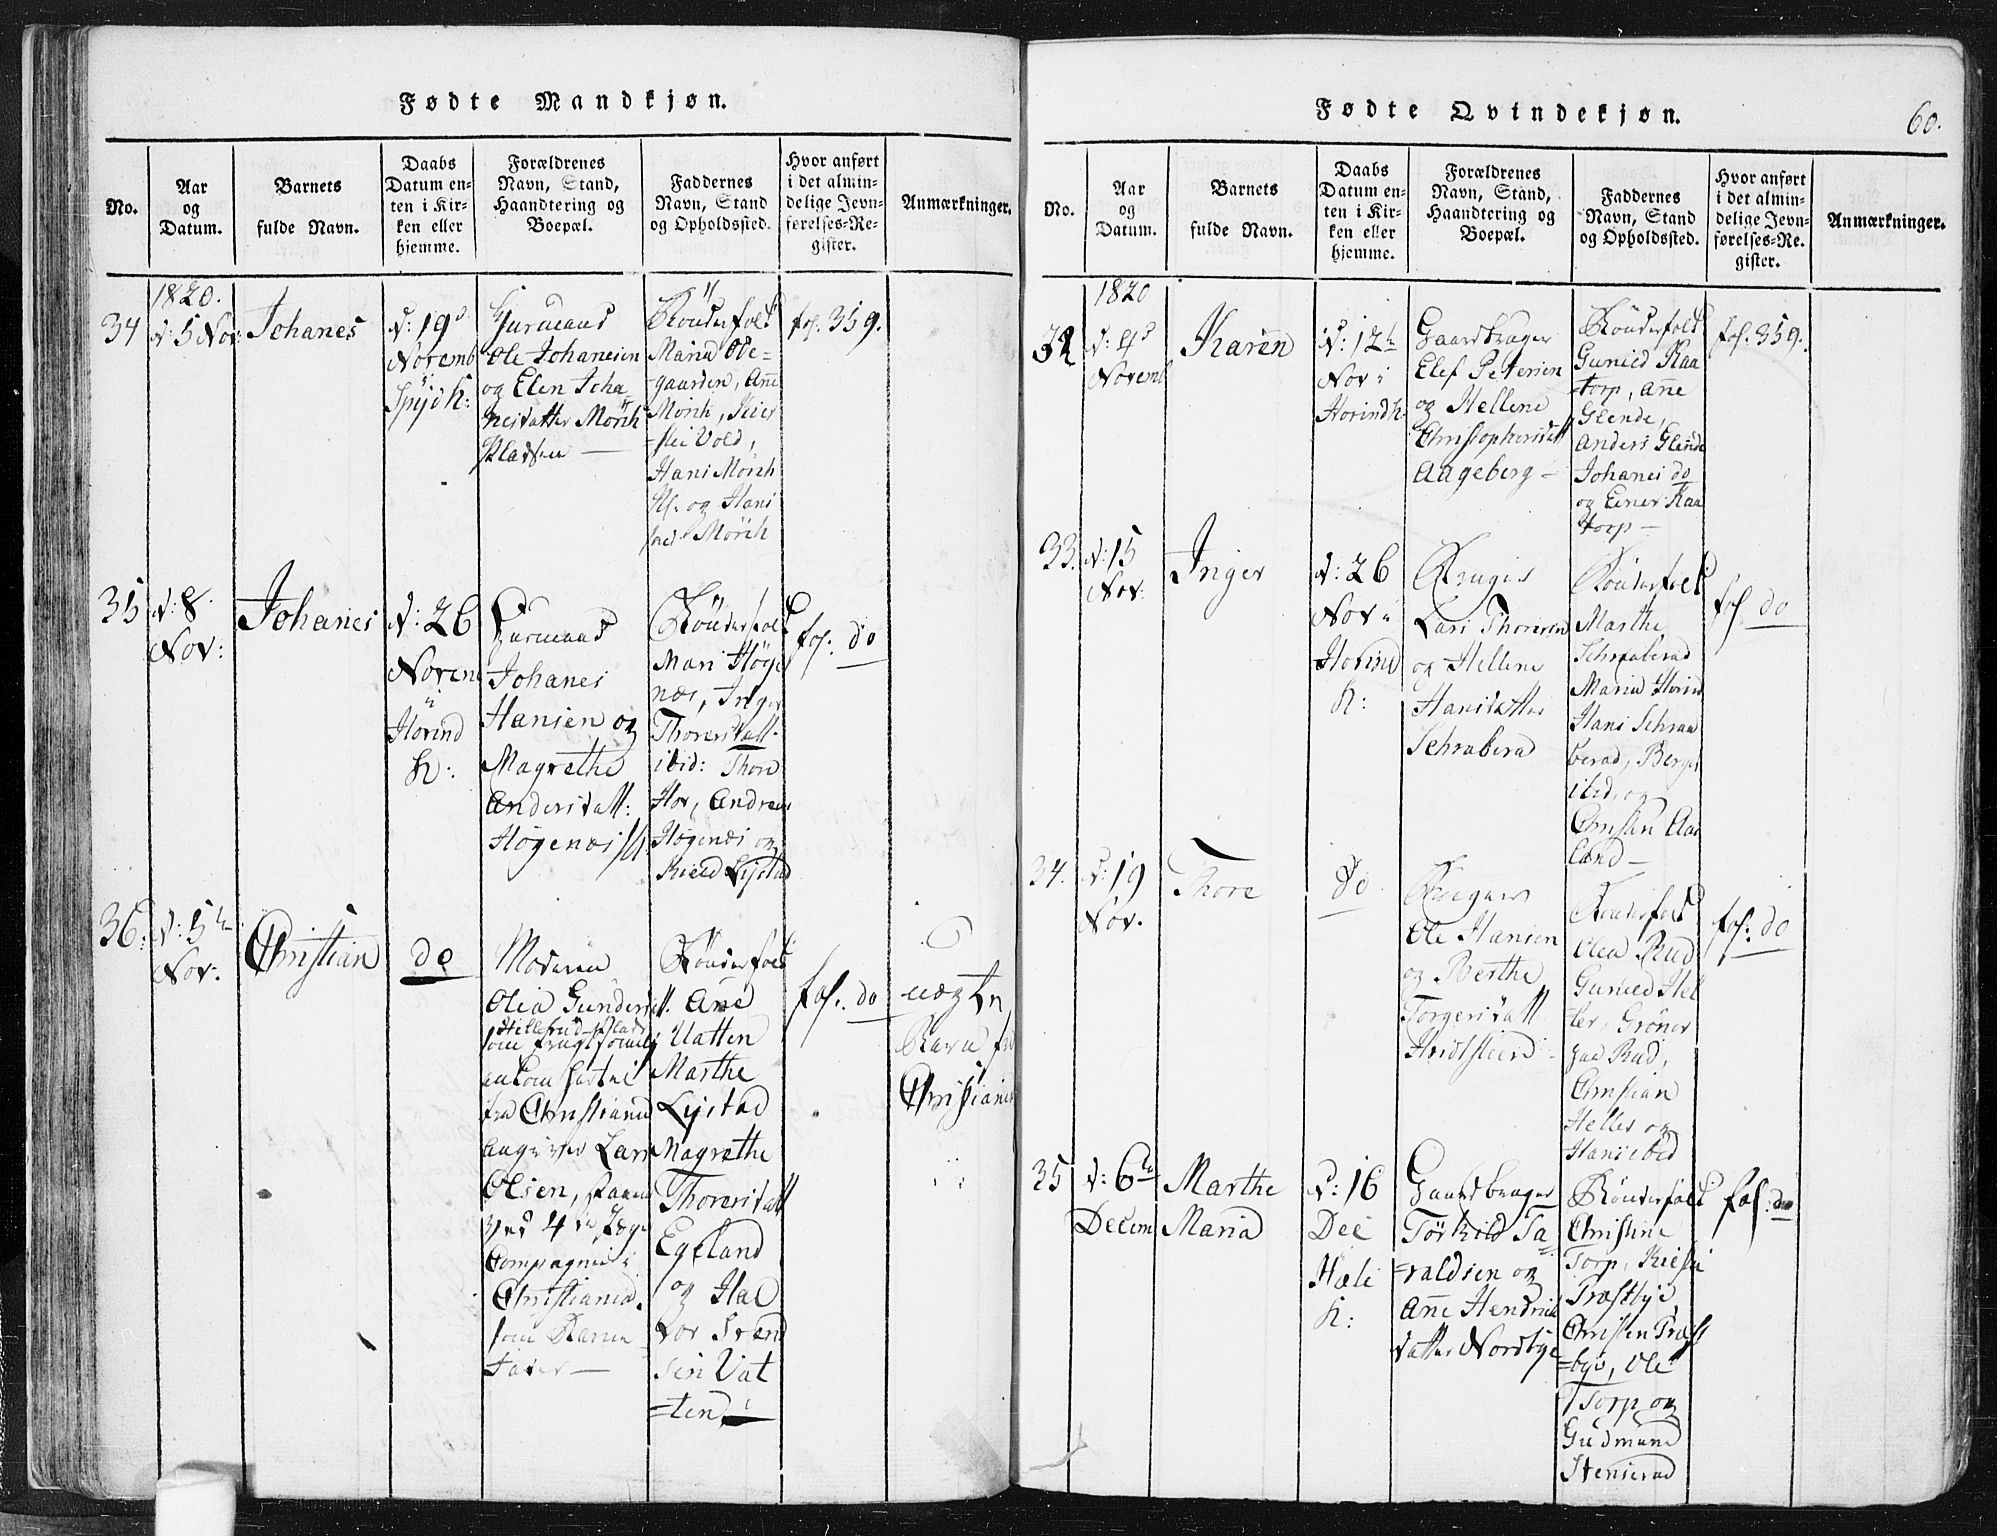 Fødte Mandkjøn.
No.
Aar
og
Datum.
Barnets
fulde Navn.
Daabs
Datum en-
ten i Kir-
ken eller
hjemme.
Forældrenes
Navn, Stand,
Haandtering og
Boepæl.
Faddernes
Navn, Stand
og Opholdssted.
Hvor anført
i det almin-
delige Jevn-
førelses-Re-
gister.
Anmærkninger.
34
1820.
d: 5 Nov:
Johanes
d: 19
Novemb
i
K:
Huusmand
Ole Johanesen
og Elen Joha
nesdatter Mörch
Pladsen —
Bönderfolk
Maria Ode-
gaarden, Añe
Mörch,
Vold,
Hans Mörch
og Hans
Mörch
fol. 359.
35
d: 8
Nov:
Johanes
d: 26
Novem
i
Hovind
K:
Huusmand
Johanes
Hansen og
Magrethe
Andersdatt:
Högenæs
Bönderfolk
Mari Höge
næs, Inger
Thoresdatt
ibid: Thore
Hov, Andreas
Högenæs og
Lystad
fol. do
36.
d: 5te
Nov:
Christian
do
Moderen
Olea Gunders
Pladsen
som
ankom hertil
fra Christiania
angiver Lars
Olsen, staaen
ved 4de Jæge
Compagnie i
Christiania
som Barne
Fader —
Bönderfolk
Añe
Vatten
Marthe
Lystad
Magrethe
Thoresdatt
Egeland
og Hal
vor Svend
sen Vat
=ten
fol. do
uægte
Barn fra
Christiania
Fødte Qvindekjøn.
60.
No.
Aar
og
Datum.
Barnets
fulde Navn.
Daabs
Datum en-
ten i Kir-
ken eller
hjemme.
Forældrenes
Navn, Stand,
Haandtering og
Boepæl.
Faddernes
Navn, Stand
og Opholdssted.
Hvor anført
i det almin-
delige Jevn-
førelses-Re-
gister.
Anmærkninger.
32
1820
Novemb
Karen
d: 12te
Nov i
Hovind K
Gaardbruger
Elef Petersen
og Hellene
Christophersdatt
Aageberg —
Bönderfolk
Gunild Kaa
torp, Añe
Glende,
Anders Glende
Johanes do
og Einer Kaa
torp —
fol. 359.
33.
d: 15
Nov:
Inger
d: 26
Nov i
Hovind
K:
Bruger
Lars Thoresen
og Hellene
Hansdatter
Schraberud
Bönderfolk
Marthe
Schraberud
Maria Hovind
Hans Schraa
berud, Berger
ibid, og
Christian Aas
land —
fol. do
34.
d: 19
Nov.
Thore
do
Bruger
Ole Hansen
og Berthe
Torgersdatt
Bönderfolk
Olea Rud
Gunild Hel
ler,
Rud,
Christian
Heller og
Hans ibid
fol: do
35
d: 6te
Decem
Marthe
Maria
d: 16
Dec
Hæli
K:
Gaardbruger
Törkild Ta
=raldsen og
Añe Hendrik
datter Nordbye
Bönderfolk
Christine
Torp,
Præstbye
Christen Præst
=bye, Ole
Torp og
Gudmund
Stenserud
fol. do